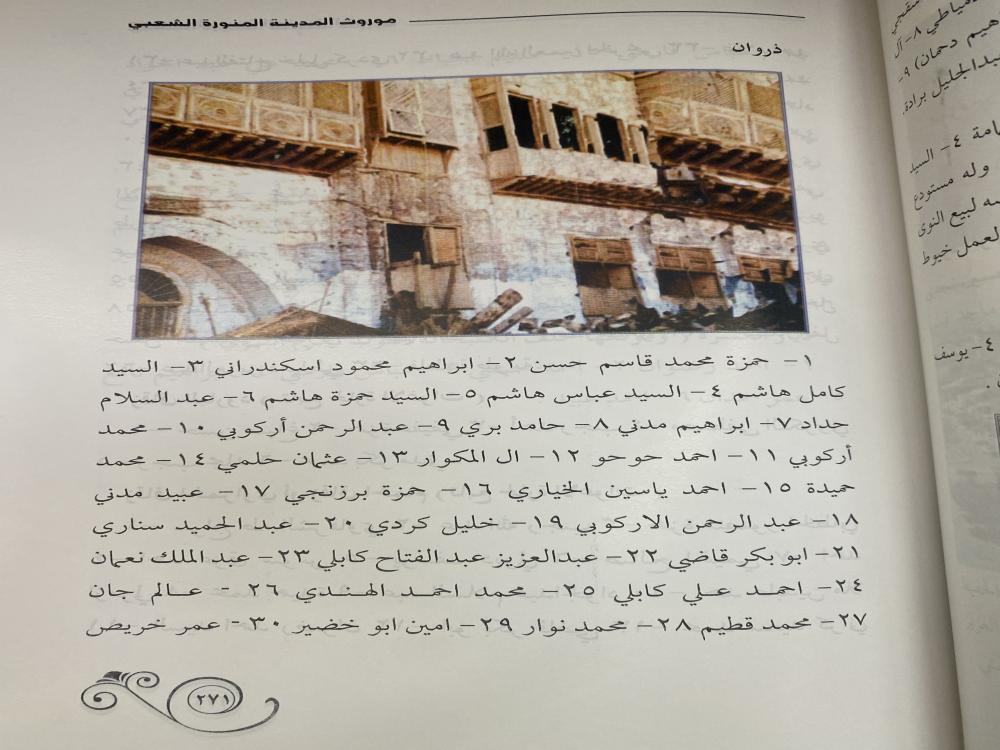 موروث المدينة المنورة الشعبي
ذروان
١- حمزة محمد قاسم حسن ٢- ابراهيم محمود اسكندراني ٣- السيد
كامل هاشم ٤- السيد عباس هاشم ٥- السيد حمزة هاشم ٦- عبد السلام
حداد ٧- ابراهيم مدني ٨- حامد بري ٩- عبد الرحمن أركوبي ١٠- محمد
أركوبي ١١- احمد حوحو ١٢- ال المكوار ١٣- عثمان حلمي ١٤- محمد
حميدة ١٥- احمد ياسين الخياري ١٦- حمزة برزنجي ١٧- عبيد مدني
١٨- عبد الرحمن الاركوبي ١٩- خليل كردي ٢٠- عبد الحميد سناري
٢١- ابو بكر قاضي ٢٢- عبدالعزيز عبد الفتاح كابلي ٢٣- عبد الملك نعمان
٢٤- احمد علي كابلي ٢٥- محمد احمد الهندي ٢٦- عالم جان
٢٧- محمد قطيم ٢٨- محمد نوار ٢٩- امين ابو خضير ٣٠- عمر خريص
٢٧١
٨- آل
هيم دحمان) ٩-
عبدالجليل برادة.
٤- السيد
وله مستودع
لبيع النوى
خيوط
٤- يوسف